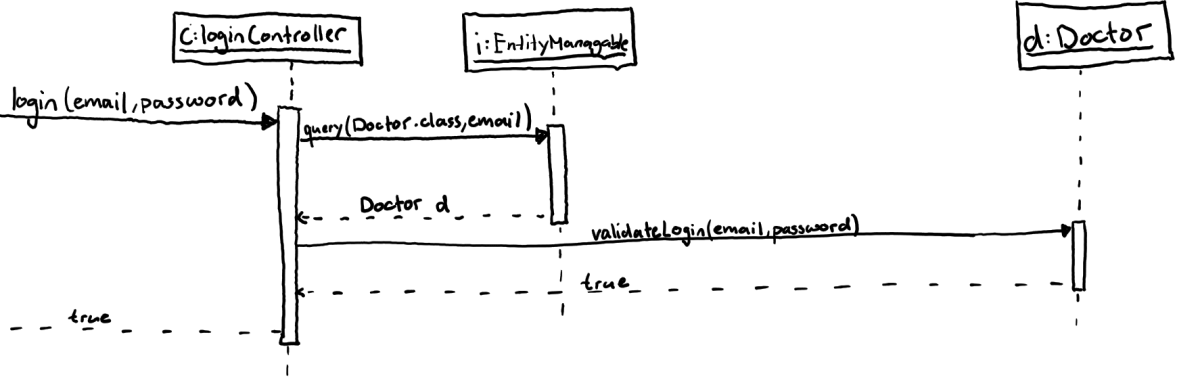 C:loginController
i:EntityManagable
d:Doctor
login(email,password)
query(Doctor.class,email)
Doctor d
validateLogin(email,password)
true
true